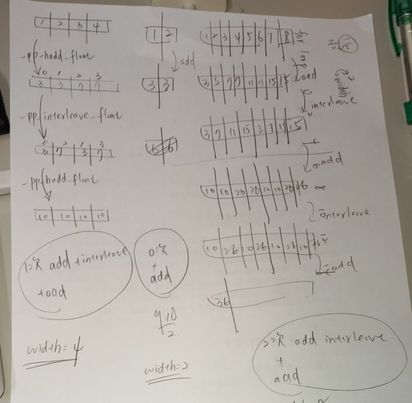 1 2 3 4
-pp-hadd-float
3 3 7 7
-pp-interleave-float
3 7 3 7
-pp-hadd-float
10 10 10 10
1次 add + interleave
+ add
width = 4
1 2
add
3 3
0次
+
add
width = 2
1 2 3 4 5 6 7 8
add
3 3 7 7 11 11 15 15
interleave
3 7 11 15 3 7 11 15
add
10 10 26 26 10 10 26 26
interleave
10 26 10 26 10 26 10 26
add
36
2次 add interleave
+
add